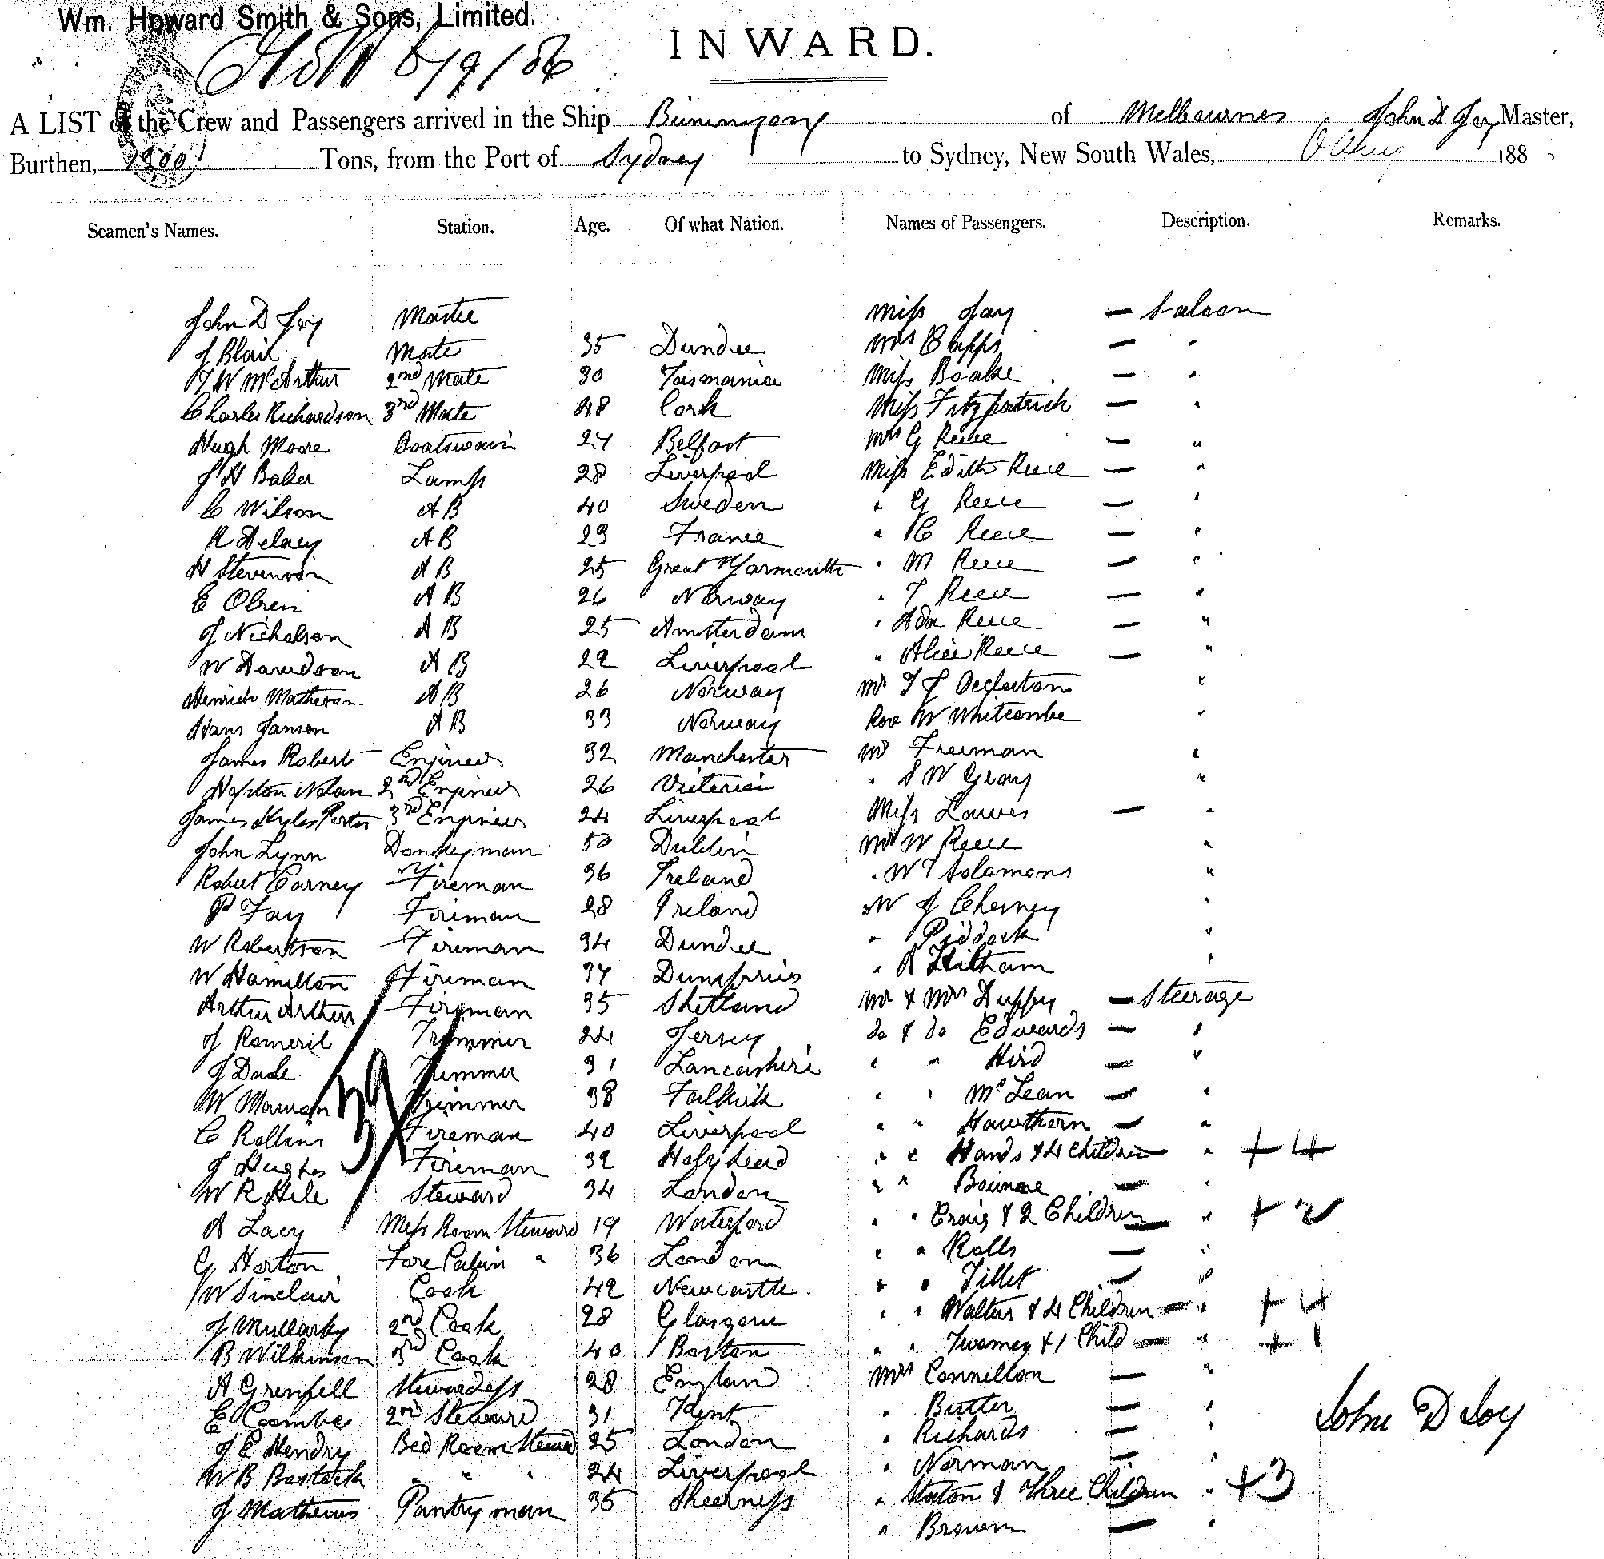 Wm. Howard Smith & Sons, Limited.
6/9/86
INWARD.
A LIST of the Crew and Passengers arrived in the Ship Buninyong of Melbourne John D Joy Master,
Burthen, Tons, from the Port of Sydney to Sydney, New South Wales, 188
Seamen's Names. Station. Age. Of what Nation. Names of Passengers. Description. Remarks.
John D Joy Master Miss Jay — Saloon
J Blair Mate 35 Dundee Mrs — "
W McArthur 2nd Mate 30 Tasmania Miss Boake — "
Charles Richardson 3rd Mate 48 Cork Miss Fitzpatrick — "
Hugh Moore Boatswain 27 Belfast Mrs G Reece — "
J H Baker Lamps 28 Liverpool Miss Edith Reece — "
C Wilson A B 40 Sweden " G Reece — "
R Delaey A B 23 France " C Reece — "
H Stevenson A B 25 Great Yarmouth " M Reece — "
C Olsen A B 26 Norway " T Reece — "
J Nicholson A B 25 Amsterdam " Ada Reece — "
W Davidson A B 22 Liverpool " Alice Reece — "
Henrich Matheson A B 26 Norway Mr T J "
Hans Janson A B 33 Norway Rev W Whitcombe "
James Robert Engineer 32 Manchester Mr Freeman "
Nolan 2nd Engineer 26 Victoria " S W Gray "
James Porter 3rd Engineer 24 Liverpool Miss Lawes — "
John Lynn Donkeyman 50 Dublin Mr W Reece "
Robert Carney Fireman 36 Ireland " W T Solomons "
P Fay Fireman 28 Ireland " W J Cherney "
W Robertson Fireman 34 Dundee " Piddock "
W Hamilton Fireman 37 Dumfries " A "
Arthur Arthur Fireman 35 Shetland Mr & Mrs Duffy — Steerage
J Romeril Trimmer 24 Jersey do & do Edwards — "
J Dade Trimmer 31 Lancashire " " Hird — "
W Trimmer 38 Falkirk " " McLean — "
C Rollins Fireman 40 Liverpool " " Hawthorn — "
J Hughes Fireman 32 Holyhead " " Hands & 4 Children " + 4
W R Hile Steward 34 London " " Bourne — "
A Lacy Mess Room Steward 19 Waterford " " Craig & 2 Children — " + 2
G Horton Fore Cabin " 36 London " " Rolls — "
W Sinclair Cook 42 Newcastle " " Tillet — "
J Mullarky 2nd Cook 28 Glasgow " " Walters & 4 Children — " + 4
B Wilkinson 3rd Cook 40 Boston " " Twomey & 1 Child — " + 1
A Grenfell Stewardess 28 England Mrs Connilton — "
E Coombes 2nd Steward 31 Kent " Butter — "
J E Hendry Bed Room Steward 25 London " Richards — "
W B Bostock " " " 24 Liverpool " Norman — "
J Mathews Pantryman 35 Sheerness " Staton & Three Children " + 3
" Brown — "
39
John D Joy